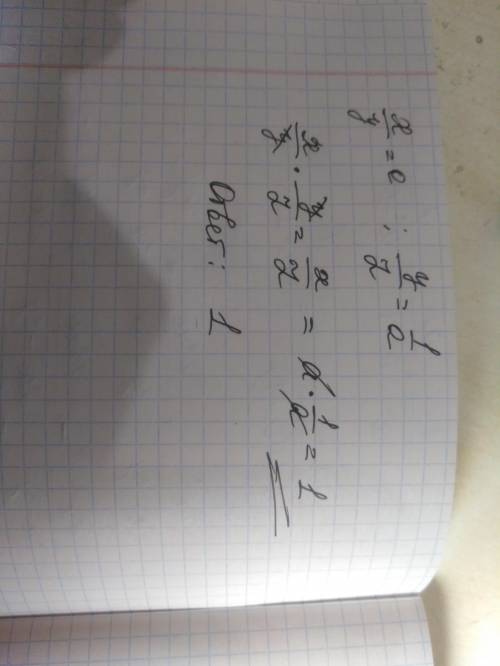 x/y = a ; y/z = 1/a
x/y · y/z = x/z = a · 1/a = 1
Ответ: 1